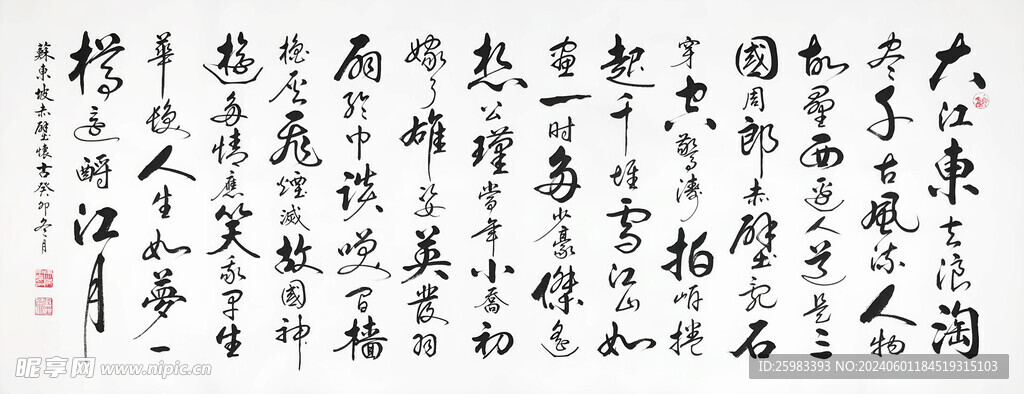 大江東去浪淘
盡千古風流人物
故壘西邊人道是三
國周郎赤壁亂石
穿空驚濤拍岸捲
起千堆雪江山如
畫一时多少豪傑遙
想公瑾當年小喬初
嫁了雄姿英發羽
扇綸巾談笑間檣
櫓灰飛煙滅故國神
遊多情應笑我早生
華髮人生如夢一
樽還酹江月
蘇東坡赤壁懷古癸卯冬月
昵享网 www.nipic.cn
ID:25983393 NO:20240601184519315103